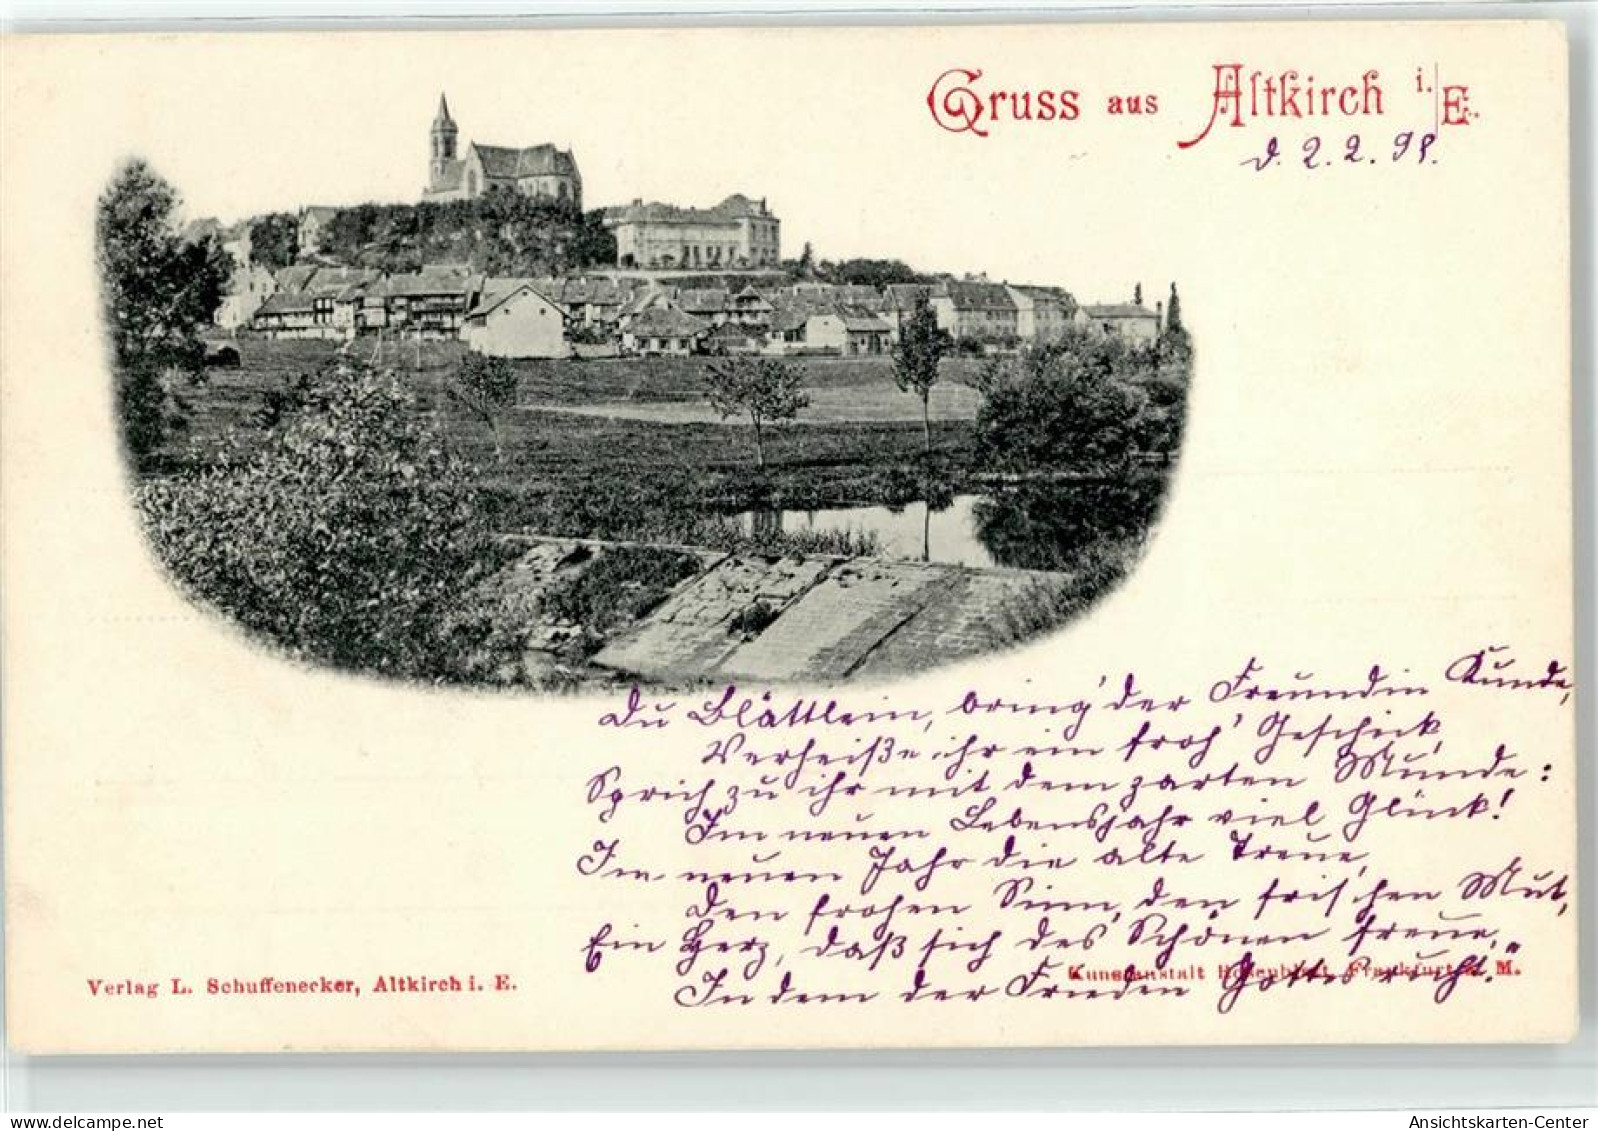 Gruss aus Altkirch i. E.
d. 2. 2. 98.
Du Blättlein, bring' der Freundin Kunde,
Verheiße ihr ein froh' Geschick,
Sprich zu ihr mit dem zarten Munde:
Im neuen Lebensjahr viel Glück!
Im neuen Jahr die alte Treue,
Den frohen Sinn, den frischen Mut,
Ein Herz, daß sich des Schönen freue,
In dem der Frieden Gottes ruht!"
Verlag L. Schuffenecker, Altkirch i. E.
Kunstanstalt Rosenblatt, Frankfurt a. M.
Ansichtskarten-Center